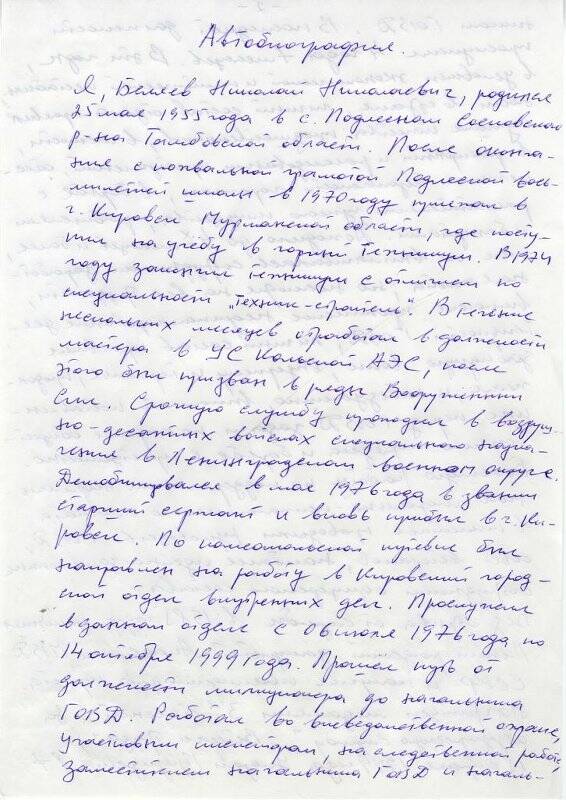 Автобиография.
Я, Беляев Николай Николаевич, родился
25 мая 1955 года в с. Подлесном Сосновского
р-на Тамбовской области. После оконча-
ния с похвальной грамотой Подлесной вось-
милетней школы в 1970 году приехал в
г. Кировск Мурманской области, где посту-
пил на учёбу в горный техникум. В 1974
году закончил техникум с отличием по
специальности "техник-строитель". В течение
нескольких месяцев отработал в должности
мастера в УС Кольской АЭС, после
этого был призван в ряды Вооруженных
Сил. Срочную службу проходил в воздуш-
но-десантных войсках специального назна-
чения в Ленинградском военном округе.
Демобилизовался в мае 1976 года в звании
старший сержант и вновь прибыл в г. Ки-
ровск. По комсомольской путевке был
направлен на работу в Кировский город-
ской отдел внутренних дел. Прослужил
в данном отделе с 06 июля 1976 года по
14 октября 1999 года. Прошел путь от
должности милиционера до начальника
ГОВД. Работал во вневедомственной охране,
участковым инспектором, на следственной работе,
заместителем начальника ГОВД и началь-